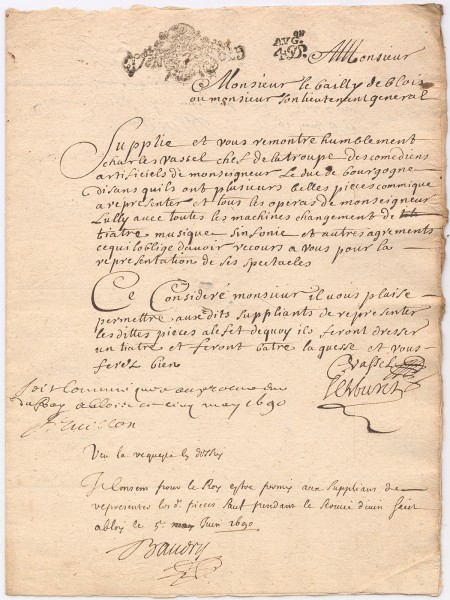 AVG.on
4 D.
A Monsieur
Monsieur le bailly de blois
ou monsieur son lieutenent general
Supplie et vous remontre humblement
charles vassel chef de la troupe des comediens
artificiels de monseigneur le duc de bourgogne
disans quils ont plusieurs belles pieces commique
a representer et tous les operas de monseigneur
Lully avec toutes les machines changement de
tiatre musique sinfonie et autres agrements
ce qui loblige davoir recours a vous pour la
representation de ses spectacles
Ce Consideré monsieur il vous plaise
permettre aux dits suppliants de representer
les dittes pieces a lefet de quoy ils feront dresser
un tiatre et feront batre la quesse et vous
feres bien
C vassel
soit communiqué au procureur du
Roy a blois ce cinq may 1690
Veu la requeste cy dessus
Je Consens pour le Roy estre permis aux supplians de
representer les d. pieces sauf pendant le service divin fait
a blois le 5e may Juin 1690
Baudry